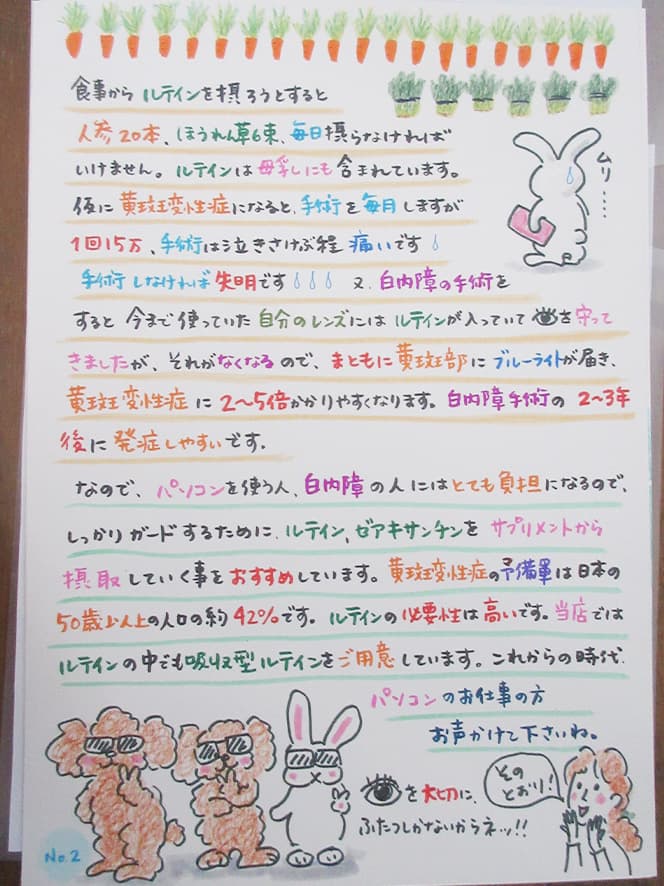 食事から ルテインを摂ろうとすると
人参20本、ほうれん草6束、毎日摂らなければ
いけません。ルテインは母乳にも含まれています。
仮に黄斑変性症になると、手術を毎月しますが
1回15万、手術は泣きさけぶ程 痛いです
手術しなければ失明です 又、白内障の手術を
すると今まで使っていた自分のレンズにはルテインが入っていて を守って
きましたが、それがなくなるので、まともに黄斑部にブルーライトが届き、
黄斑変性症に2〜5倍かかりやすくなります。白内障手術の2〜3年
後に発症しやすいです。
なので、パソコンを使う人、白内障の人にはとても負担になるので、
しっかりガードするために、ルテイン、ゼアキサンチンをサプリメントから
摂取していく事をおすすめしています。黄斑変性症の予備軍は日本の
50歳以上の人口の約42%です。ルテインの必要性は高いです。当店では
ルテインの中でも吸収型ルテインをご用意しています。これからの時代
パソコンのお仕事の方
お声かけて下さいね。
ムリ....
を大切に、
ふたつしかないからネッ!!
そのとおり!
No.2